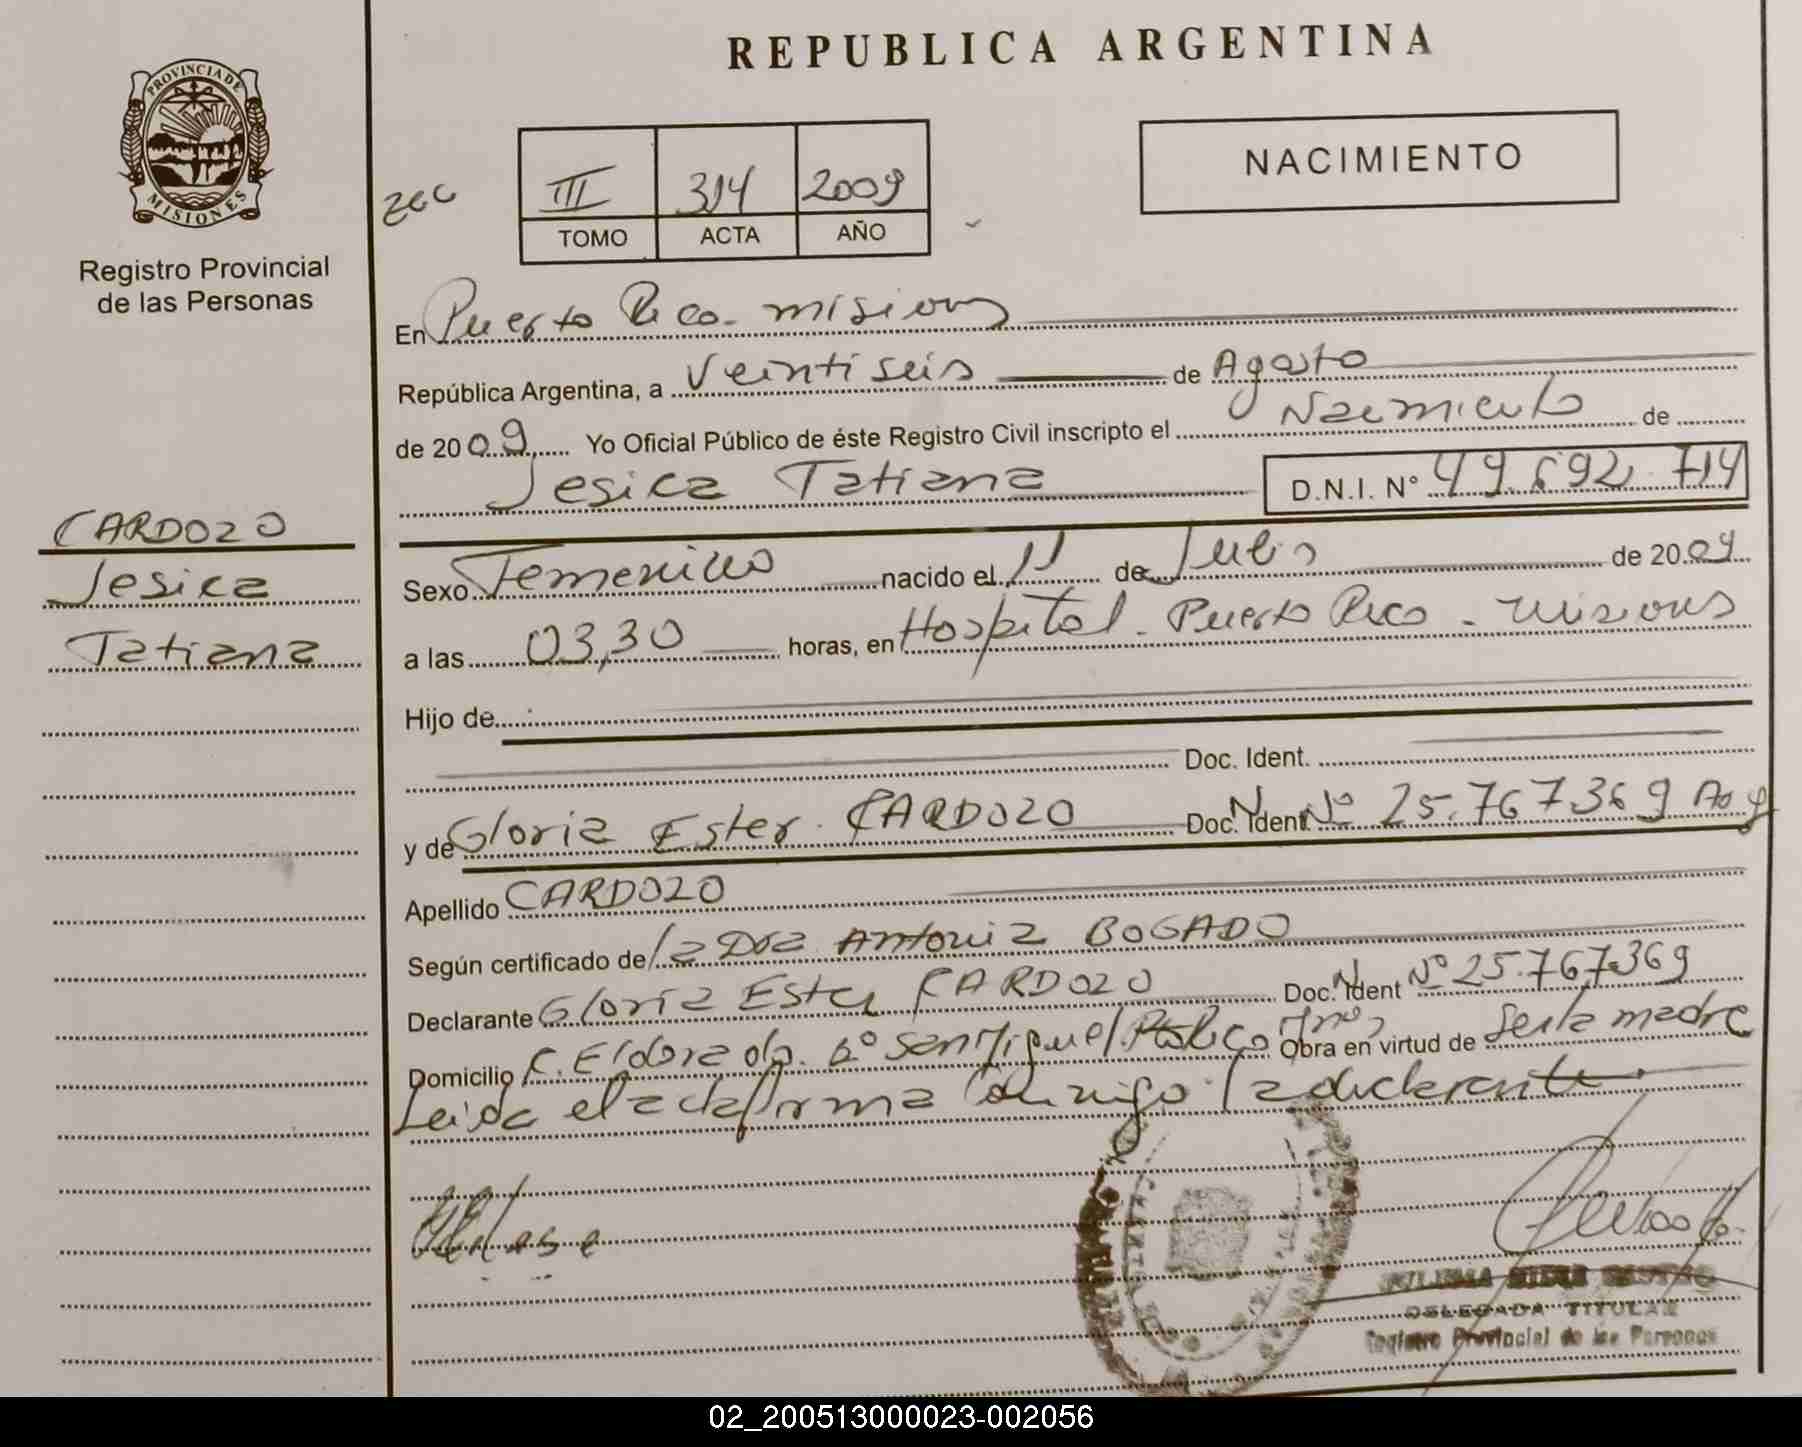 REPUBLICA ARGENTINA
PROVINCIA DE
MISIONES
Registro Provincial
de las Personas
III 314 2009
TOMO ACTA AÑO
NACIMIENTO
En Puerto Rico - misiones
República Argentina, a Veintiseis de Agosto
de 2009, Yo Oficial Público de éste Registro Civil inscripto el Nacimiento de
Jesica Tatiana D.N.I. N° 49.692.714
CARDOZO
Jesica
Tatiana
Sexo Femenino nacido el 11 de Julio de 2009
a las 03,30 horas, en Hospital - Puerto Rico - misiones
Hijo de
Doc. Ident.
y de Gloria Ester CARDOZO Doc. Ident. N° 25.767369
Apellido CARDOZO
Según certificado de la Dra Antonia BOGADO
Declarante Gloria Ester CARDOZO Doc. Ident N° 25.767.369
Domicilio C. Eldorado. B° San Miguel Pto Rico Mnes Obra en virtud de ser la madre
Leida el acta firma conmigo la declarante
DELEGADA TITULAR
Registro Provincial de las Personas
02_200513000023-002056